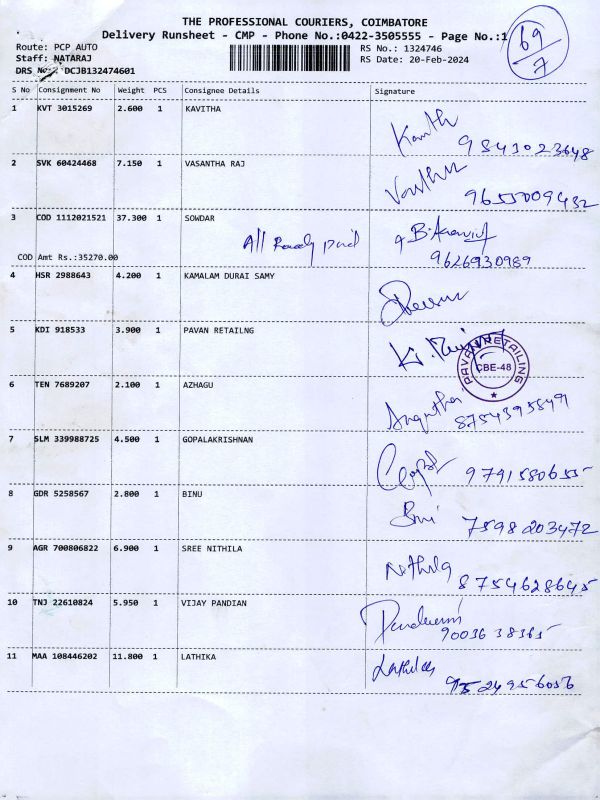 THE PROFESSIONAL COURIERS, COIMBATORE
Delivery Runsheet - CMP - Phone No.:0422-3505555 - Page No.:1
69
7
Route: PCP AUTO
RS No.: 1324746
Staff: NATARAJ
RS Date: 20-Feb-2024
DRS No.: DCJB132474601
S No Consignment No Weight PCS Consignee Details Signature
1 KVT 3015269 2.600 1 KAVITHA
9841023648
2 SVK 60424468 7.150 1 VASANTHA RAJ
9655009432
3 COD 1112021521 37.300 1 SOWDAR
All Ready paid
COD Amt Rs.:35270.00
9626930989
4 HSR 2988643 4.200 1 KAMALAM DURAI SAMY
5 KDI 918533 3.900 1 PAVAN RETAILNG
PAVAN RETAILING
CBE-48
6 TEN 7689207 2.100 1 AZHAGU
8754395849
7 SLM 339988725 4.500 1 GOPALAKRISHNAN
9791580655
8 GDR 5258567 2.800 1 BINU
Bini 7598203472
9 AGR 700806822 6.900 1 SREE NITHILA
Nithila 8754628645
10 TNJ 22610824 5.950 1 VIJAY PANDIAN
9003638365
11 MAA 108446202 11.800 1 LATHIKA
9524956056